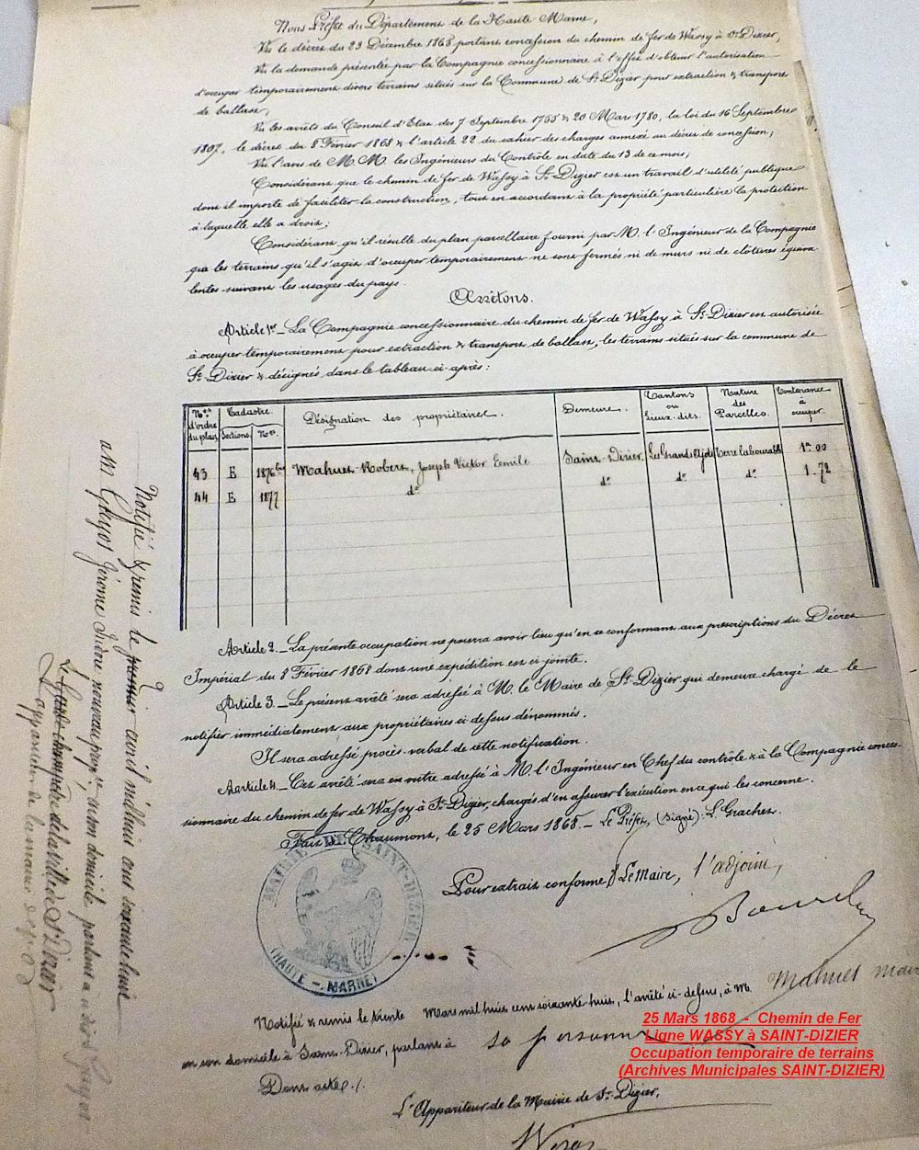 Nous Préfet du Département de la Haute-Marne,
Vu le décret du 23 Décembre 1865 portant concession du chemin de fer de Wassy à St Dizier,
Vu la demande présentée par la Compagnie concessionnaire à l'effet d'obtenir l'autorisation
d'occuper temporairement divers terrains situés sur la Commune de St Dizier pour extraction & transport
de ballast,
Vu les arrêts du Conseil d'Etat des 7 Septembre 1755 & 20 Mars 1780, la loi du 16 Septembre
1807, le décret du 8 Février 1868 & l'article 22 du cahier des charges annexé au décret de concession;
Vu l'avis de M.M. les Ingénieurs du Contrôle en date du 13 de ce mois;
Considérant que le chemin de fer de Wassy à St Dizier est un travail d'utilité publique
dont il importe de faciliter la construction, tout en accordant à la propriété particulière la protection
à laquelle elle a droit;
Considérant qu'il résulte du plan parcellaire fourni par M. l'Ingénieur de la Compagnie
que les terrains qu'il s'agit d'occuper temporairement ne sont fermés ni de murs ni de clôtures équiva-
lentes suivant les usages du pays.
Arrêtons.
Article 1er La Compagnie concessionnaire du chemin de fer de Wassy à St Dizier est autorisée
à occuper temporairement pour extraction & transport de ballast, les terrains situés sur la commune de
St Dizier & désignés dans le tableau ci-après:
Nos d'ordre du plan | Cadastre. Sections. Nos. | Désignation des propriétaires. | Demeure. | Cantons ou lieux-dits. | Nature des Parcelles. | Contenance à occuper.
43 E 1876 Mahuet-Robert, Joseph Victor Emile Saint-Dizier Les Grands Terre labourable 1.00
44 E 1877 do do do do 1.72
Article 2. La présente occupation ne pourra avoir lieu qu'en se conformant aux prescriptions du Décret
Impérial du 8 Février 1868 dont une expédition est ci-jointe.
Article 3. Le présent arrêté sera adressé à M. le Maire de St Dizier qui demeure chargé de le
notifier immédiatement aux propriétaires ci dessus dénommés.
Il sera adressé procès-verbal de cette notification.
Article 4. Cet arrêté sera en outre adressé à M. l'Ingénieur en Chef du contrôle & à la Compagnie conces-
sionnaire du chemin de fer de Wassy à St Dizier, chargés d'en assurer l'exécution en ce qui les concerne.
Fait à Chaumont, le 25 Mars 1868. Le Préfet, (signé): L. Grachet.
Pour extrait conforme, Le Maire, l'adjoint,
MAIRIE DE SAINT-DIZIER
(HAUTE-MARNE)
Notifié & remis le trente Mars mil huit cent soixante-huit, l'arrêté ci-dessus, à M. Mahuet
en son domicile à Saint-Dizier, parlant à sa personne
Dont acte./.
L'Appariteur de la Mairie de St Dizier,
Notifié & remis le premier avril mil huit cent soixante huit
a Mr Guyot Jérome nouveau en son domicile parlant a
Le Garde champêtre de la ville de St Dizier
L'appariteur de la mairie
25 Mars 1868 - Chemin de Fer
Ligne WASSY à SAINT-DIZIER
Occupation temporaire de terrains
(Archives Municipales SAINT-DIZIER)